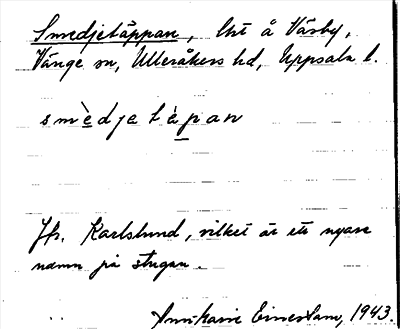 Smedjetäppan, lht å Väsby,
Vänge sn, Ulleråkers hd, Uppsala l.
smèdjetäpan
Jfr. Karlslund, vilket är ett nyare
namn på stugan.
1943.